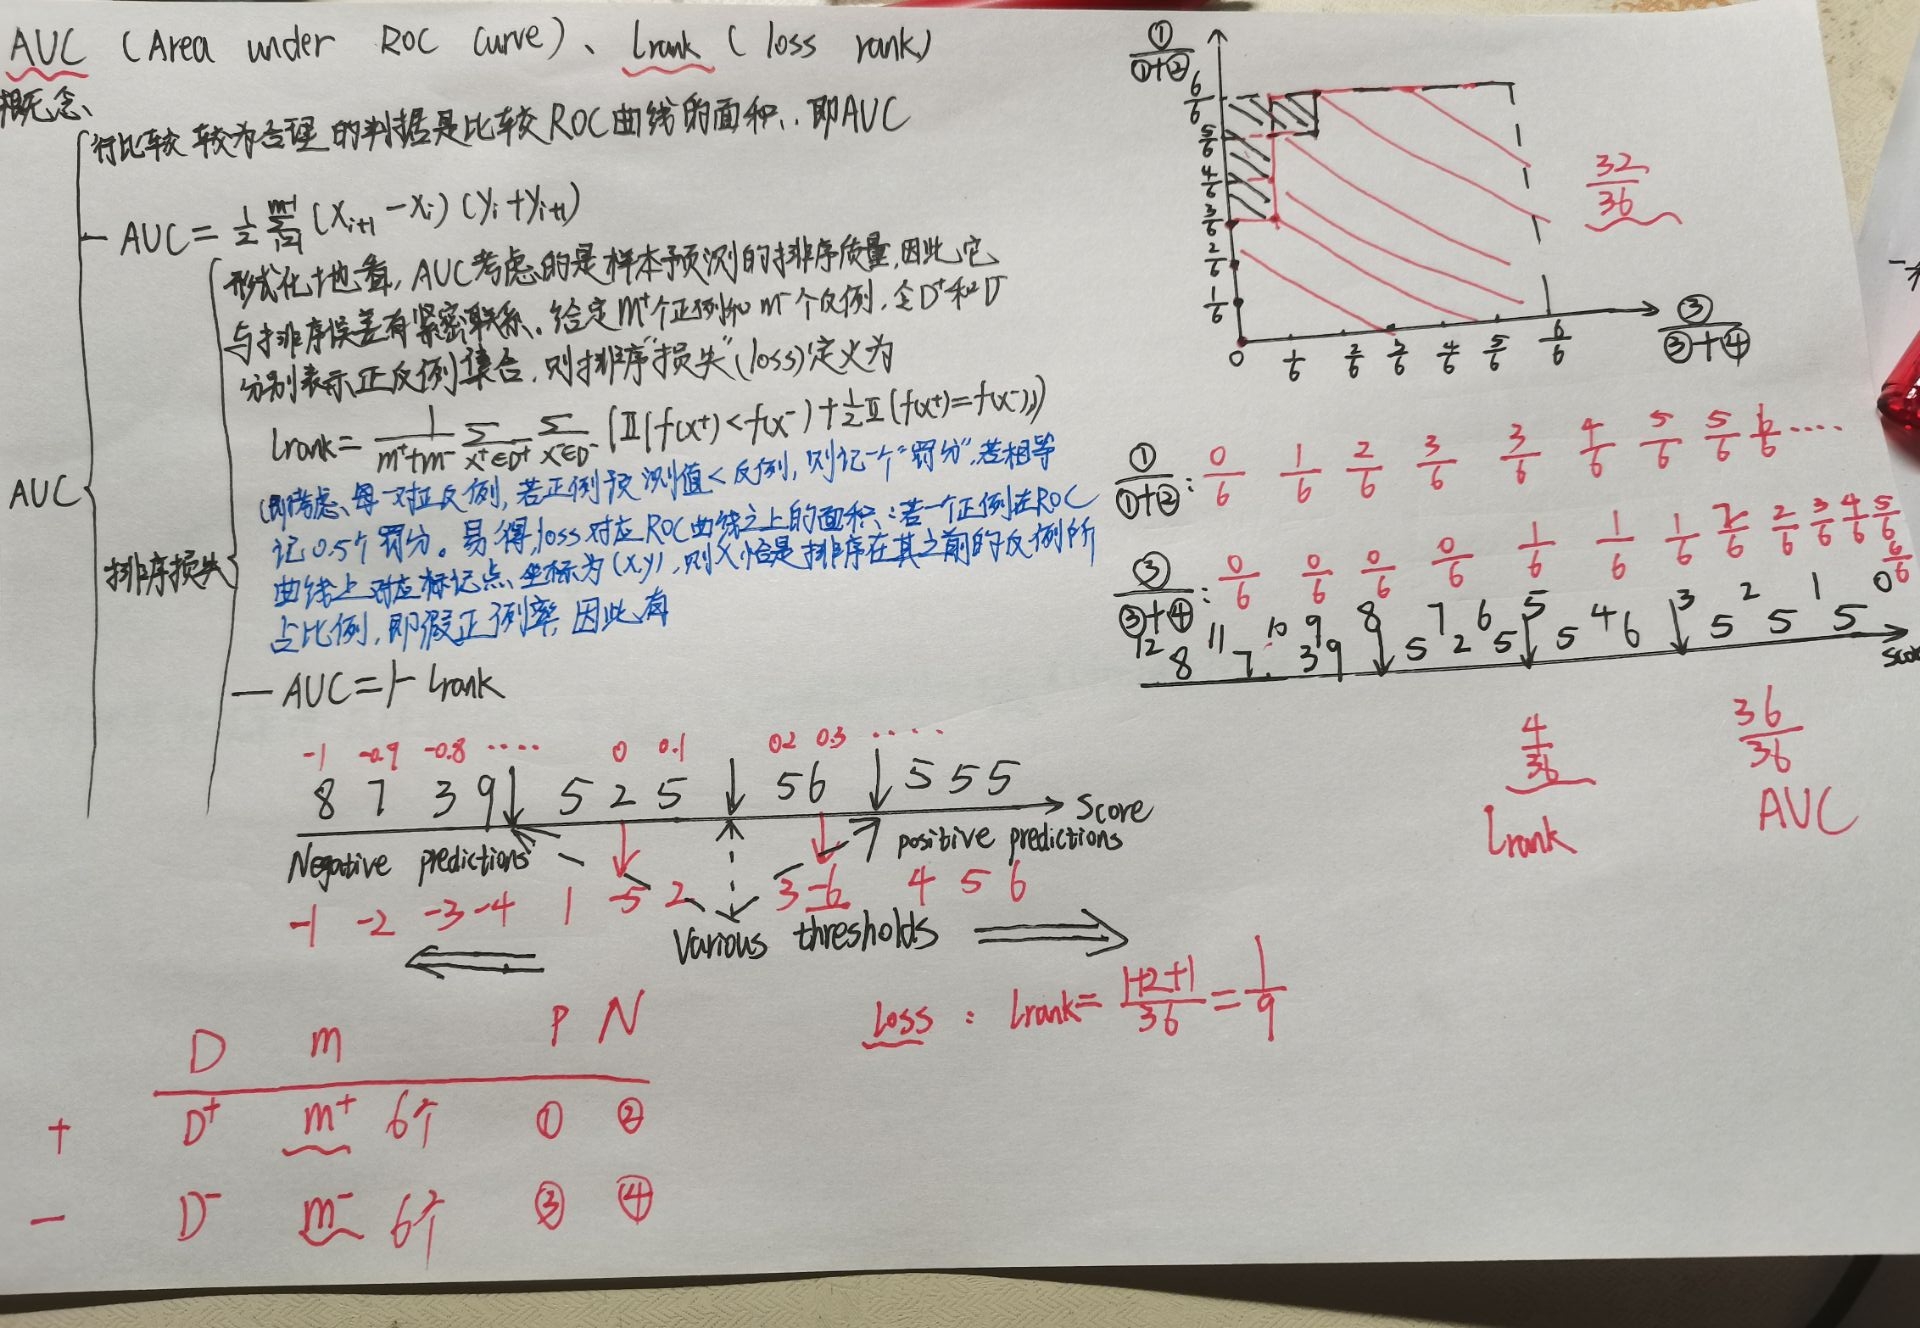 AUC (Area under ROC curve)、Lrank ( loss rank)
概念、
行比较 较为合理 的判据是比较ROC曲线的面积,即AUC
AUC = 1/2 Σ_{i=1}^{m-1} (x_{i+1} - x_i) (y_i + y_{i+1})
形式化地看, AUC考虑的是样本预测的排序质量,因此它
与排序误差有紧密联系。给定m⁺个正例和m⁻个反例,令D⁺和D⁻
分别表示正反例集合,则排序"损失"(loss)定义为
Lrank = 1/(m⁺+m⁻) Σ_{x⁺∈D⁺} Σ_{x⁻∈D⁻} (𝕀(f(x⁺)<f(x⁻)) + 1/2 𝕀(f(x⁺)=f(x⁻)))
(即考虑、每一对正反例,若正例预测值<反例,则记一个"罚分",若相等
记0.5个罚分。易得,loss对应ROC曲线之上的面积:若一个正例在ROC
曲线上对应标记点、坐标为(x,y),则x恰是排序在其之前的反例所
占比例,即假正例率,因此有
AUC
排序损失
— AUC = 1- Lrank
-1 -0.9 -0.8 ···· 0 0.1 0.2 0.3 ····
8 7 3 9 ↓ 5 2 5 ↓ 5 6 ↓ 5 5 5
Score
Negative predictions
positive predictions
-1 -2 -3 -4 1 -5 2 3 -6 4 5 6
Various thresholds
Loss : Lrank = (1+2+1)/36 = 1/9
D m P N
+ D⁺ m⁺ 6个 ① ②
— D⁻ m⁻ 6个 ③ ④
①/(①+②)
6/6
5/6
4/6
3/6
2/6
1/6
0 1/6 2/6 3/6 4/6 5/6 6/6
③/(③+④)
32/36
①/(①+②) : 0/6 1/6 2/6 3/6 3/6 4/6 5/6 5/6 6/6 ····
③/(③+④) : 0/6 0/6 0/6 0/6 1/6 1/6 1/6 2/6 2/6 3/6 4/6 5/6 6/6
12 11 10 9 8 7 6 5 4 3 2 1 0
8 7 3 9 ↓ 5 2 5 ↓ 5 6 ↓ 5 5 5
4/36
Lrank
36/36
AUC